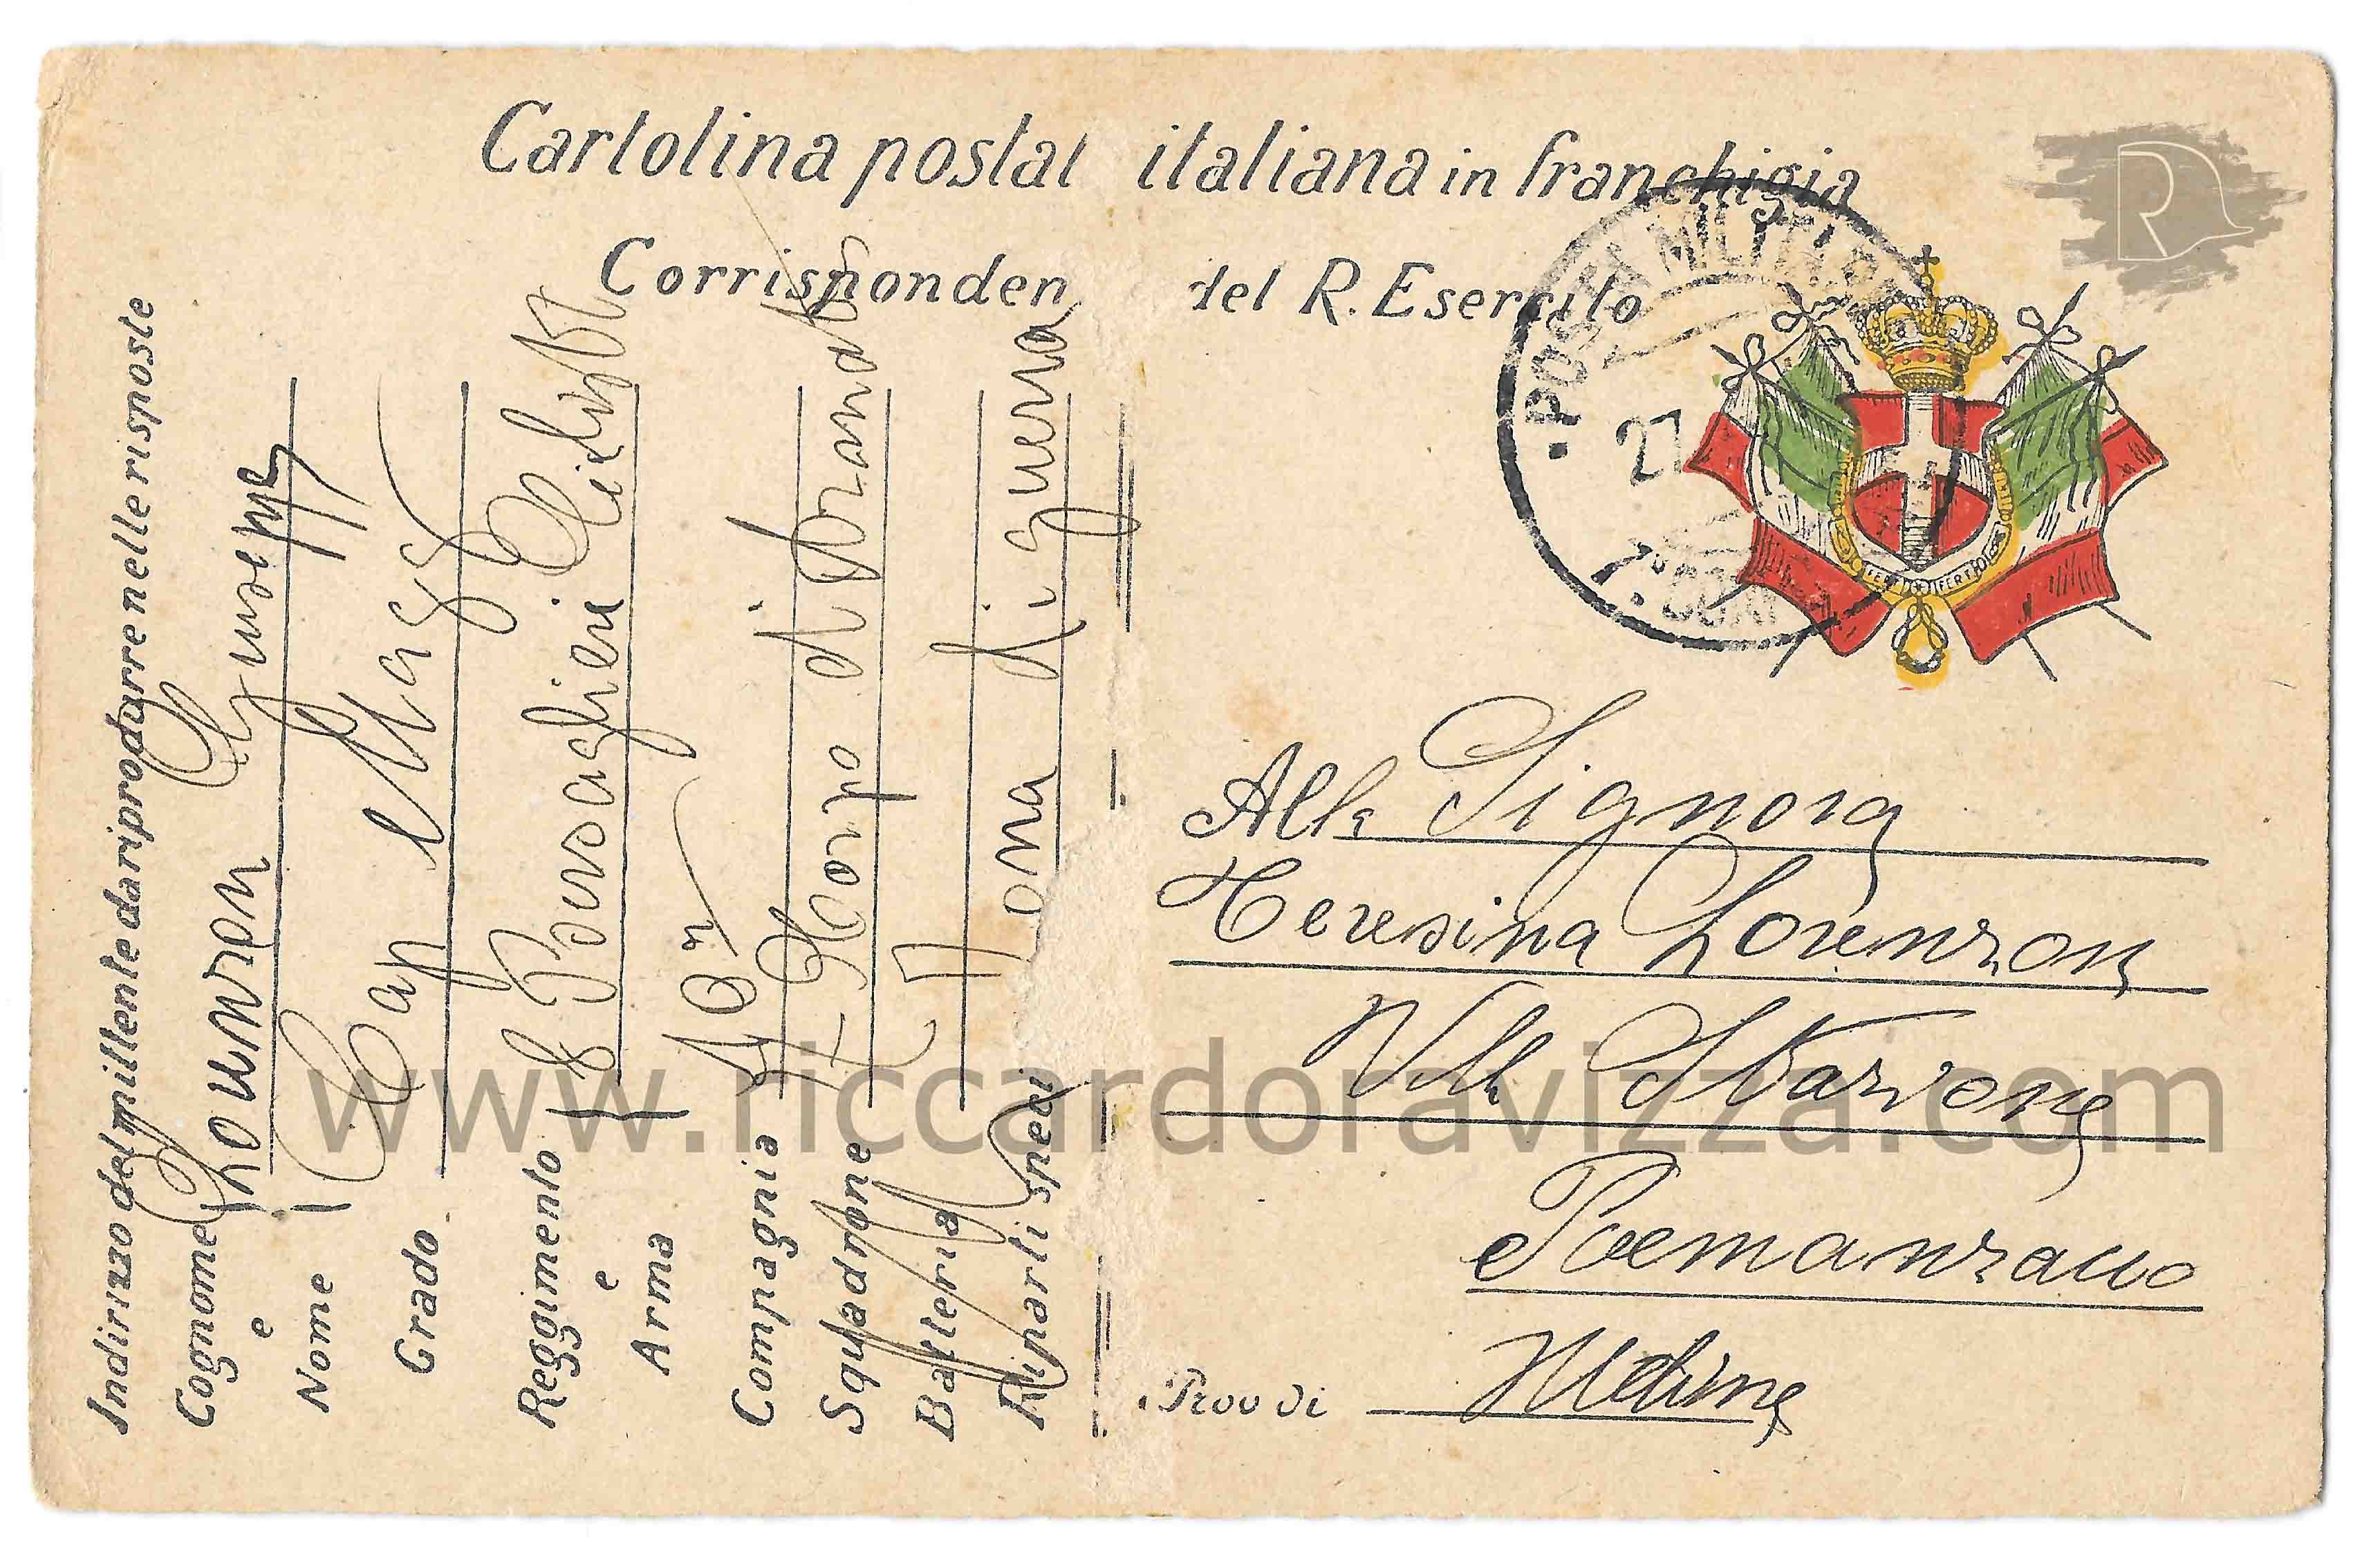 Cartolina postal italiana in franchigia
Corrisponden del R. Esercito
POSTA MILITARE
27
Indirizzo del mittente da riprodurre nelle risposte
Cognome
e
Nome
Giuseppe
Grado
Cap Magg
Reggimento
e
Arma
8 Bersaglieri Ciclisti
Compagnia 10
Squadrone Corpo d'Armata
Batteria
Riparti speci
Zona di guerra
Alla Signora
Teresina Lorenzon
Stazione
Premariacco
Prov di Udine
www.riccardoravizza.com
R
FERT FERT